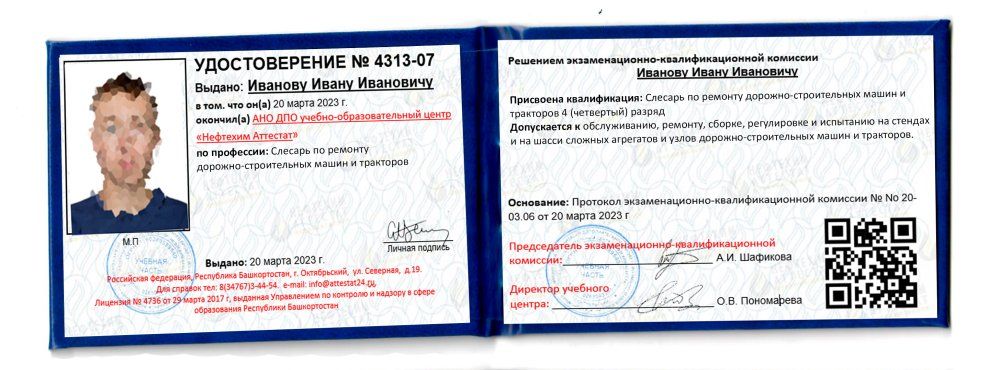 УДОСТОВЕРЕНИЕ № 4313-07
Выдано: Иванову Ивану Ивановичу
в том. что он(а) 20 марта 2023 г.
окончил(а) АНО ДПО учебно-образовательный центр
«Нефтехим Аттестат»
по профессии: Слесарь по ремонту
дорожно-строительных машин и тракторов
М.П
Личная подпись
УЧЕБНАЯ
ЧАСТЬ
Выдано: 20 марта 2023 г.
Российская федерация, Республика Башкортостан, г. Октябрьский, ул. Северная, д.19.
Для справок тел: 8(34767)3-44-54. e-mail: info@attestat24.ru,
Лицензия № 4736 от 29 марта 2017 г, выданная Управлением по контролю и надзору в сфере
образования Республики Башкортостан
Решением экзаменационно-квалификационной комиссии
Иванову Ивану Ивановичу
Присвоена квалификация: Слесарь по ремонту дорожно-строительных машин и
тракторов 4 (четвертый) разряд
Допускается к обслуживанию, ремонту, сборке, регулировке и испытанию на стендах
и на шасси сложных агрегатов и узлов дорожно-строительных машин и тракторов.
Основание: Протокол экзаменационно-квалификационной комиссии № No 20-
03.06 от 20 марта 2023 г
Председатель экзаменационно-квалификационной
комиссии: А.И. Шафикова
УЧЕБНАЯ
ЧАСТЬ
Директор учебного
центра: О.В. Пономарева